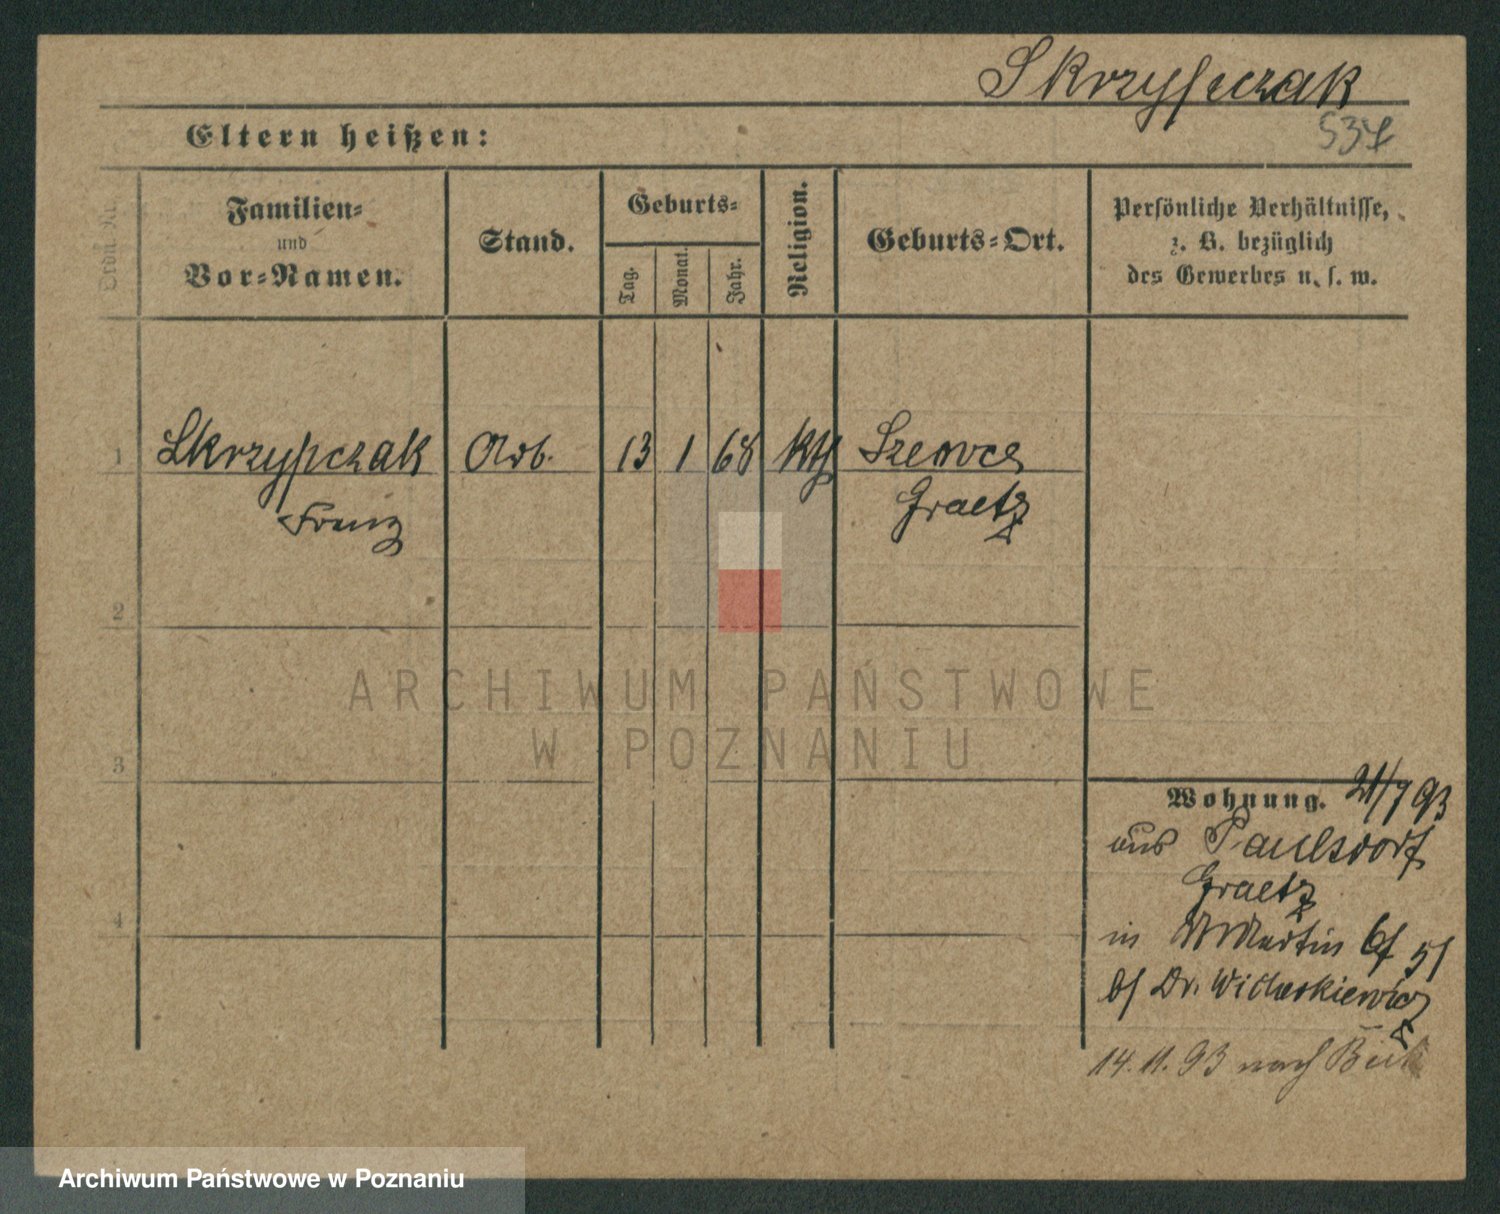 Skrzypczak
537
Eltern heißen:
Ordn. Nr.
Familien=
und
Vor=Namen.
Stand.
Geburts=
Tag.
Monat.
Jahr.
Religion.
Geburts=Ort.
Persönliche Verhältnisse,
z. B. bezüglich
des Gewerbes u. s. w.
1 Skrzypczak Arb. 13 1 68 kth Szewce
Franz Graetz
2
ARCHIWUM PAŃSTWOWE
W POZNANIU
3
Wohnung. 21/7 93
aus Paulsdorf
Graetz
4
in St Martin 6f 51
bf Dr. Wicherkiewicz
14.11.93 nach
Archiwum Państwowe w Poznaniu